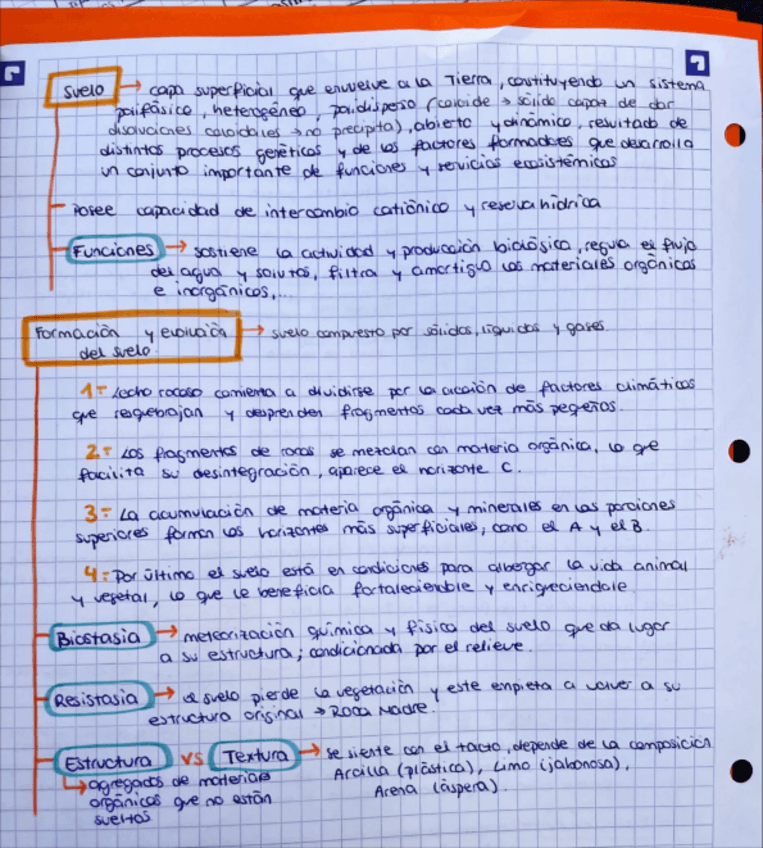 Suelo → capa superficial que envuelve a la Tierra, constituyendo un sistema
polifásico, heterogéneo, polidisperso (coloide → sólido capaz de dar
disoluciones coloidales → no precipita), abierto y dinámico, resultado de
distintos procesos genéticos y de los factores formadores que desarrolla
un conjunto importante de funciones y servicios ecosistémicos
Posee capacidad de intercambio catiónico y reserva hídrica
Funciones → sostiene la actividad y producción biológica, regula el flujo
del agua y solutos, filtra y amortigua los materiales orgánicos
e inorgánicos,...
Formación y evolución → suelo compuesto por sólidos, líquidos y gases
del suelo
1- Lecho rocoso comienza a dividirse por la acción de factores climáticos
que resquebrajan y desprenden fragmentos cada vez más pequeños.
2- Los fragmentos de rocas se mezclan con materia orgánica, lo que
facilita su desintegración, aparece el horizonte C.
3- La acumulación de materia orgánica y minerales en las porciones
superiores forman los horizontes más superficiales, como el A y el B.
4- Por último el suelo está en condiciones para albergar la vida animal
y vegetal, lo que le beneficia fortaleciendole y enriqueciendole
Biostasia → meteorización química y física del suelo que da lugar
a su estructura; condicionada por el relieve.
Resistasia → el suelo pierde la vegetación y este empieza a volver a su
estructura original → Roca Madre.
Estructura vs Textura → se siente con el tacto, depende de la composición
Arcilla (plástica), Limo (jabonosa),
Arena (áspera).
↳ agregados de materiales
orgánicos que no están
sueltos